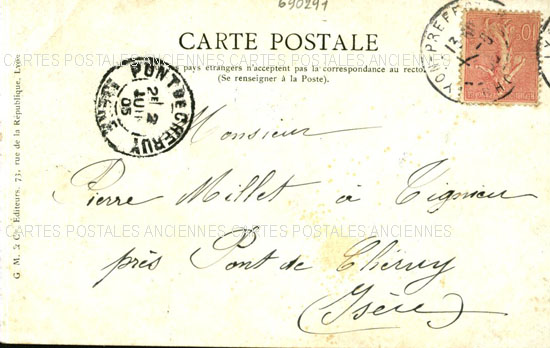 690291
CARTE POSTALE
pays étrangers n'acceptent pas la correspondance au recto
(Se renseigner à la Poste).
PONT DE CHERUY
2
JUIN
05
Monsieur
Pierre Millet à Tignieu
près Pont de Chéruy
(Isère)
G. M. & C°, Editeurs, 73, rue de la République, Lyon
CARTES POSTALES ANCIENNES CARTES POSTALES ANCIENNES
CARTES POSTALES ANCIENNES CARTES POSTALES ANCIENNES